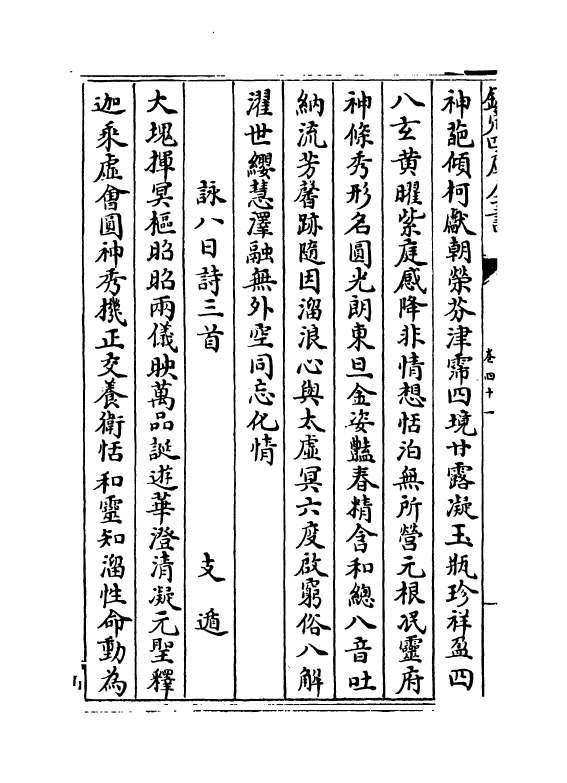 欽定四庫全書
卷四十一
神葩傾柯獻朝榮芬津霈四境甘露凝玉瓶珍祥盈四
八玄黄曜紫庭感降非情想恬泊無所營元根泯靈府
神條秀形名圓光朗東旦金姿豔春精含和總八音吐
納流芳馨跡隨因溜浪心與太虛冥六度啟窮俗八解
濯世纓慧澤融無外空同忘化情
詠八日詩三首 支遁
大塊揮冥樞昭昭兩儀映萬品誕遊華澄清凝元聖釋
迦乘虛會圓神秀機正交養衛恬和靈知溜性命動為